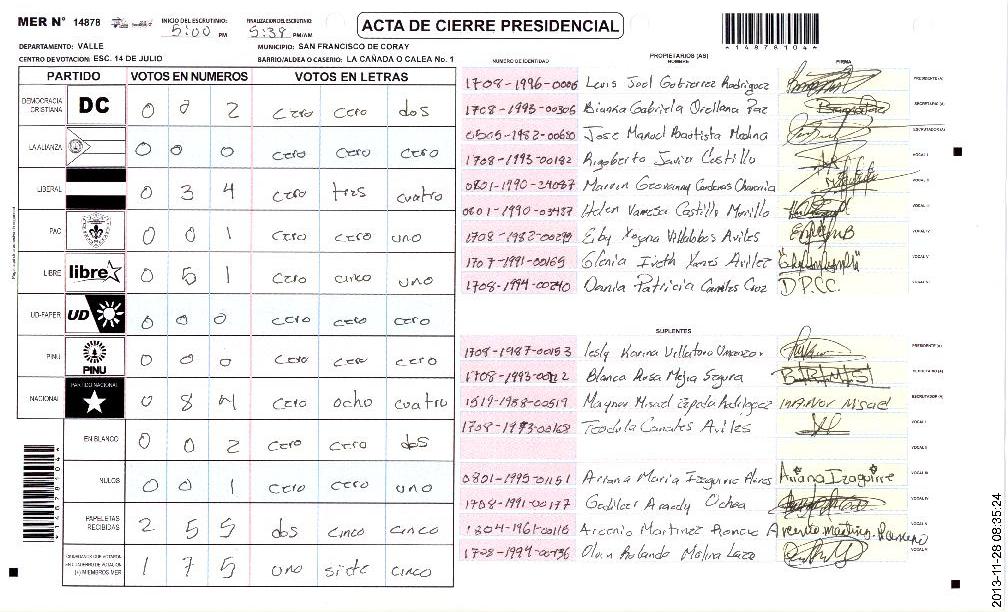 MER N° 14878 INICIO DEL ESCRUTINIO: 5:00 PM FINALIZACION DEL ESCRUTINIO: 5:38 PM/AM ACTA DE CIERRE PRESIDENCIAL
*14878104*
DEPARTAMENTO: VALLE MUNICIPIO: SAN FRANCISCO DE CORAY
CENTRO DE VOTACION: ESC. 14 DE JULIO BARRIO/ALDEA O CASERIO: LA CAÑADA O CALEA No. 1
PARTIDO VOTOS EN NUMEROS VOTOS EN LETRAS
DEMOCRACIA CRISTIANA DC 0 0 2 cero cero dos
LA ALIANZA 0 0 0 cero cero cero
LIBERAL 0 3 4 cero tres cuatro
PAC 0 0 1 cero cero uno
LIBRE libre 0 5 1 cero cinco uno
UD-FAPER UD 0 0 0 cero cero cero
PINU PINU 0 0 0 cero cero cero
NACIONAL PARTIDO NACIONAL 0 8 4 cero ocho cuatro
EN BLANCO 0 0 2 cero cero dos
NULOS 0 0 1 cero cero uno
PAPELETAS RECIBIDAS 2 5 5 dos cinco cinco
CIUDADANOS QUE VOTARON EN CUADERNO DE VOTACION (+) MIEMBROS MER 1 7 5 uno siete cinco
PROPIETARIOS (AS)
NUMERO DE IDENTIDAD NOMBRE FIRMA
1708-1996-0006 Luis Joel Gutierrez Rodriguez PRESIDENTE(A)
1708-1993-00305 Bianka Gabriela Orellana Paz SECRETARIO(A)
0505-1982-00680 Jose Manuel Bautista Medina ESCRUTADOR(A)
1708-1993-00192 Rigoberto Javier Castillo VOCAL I
0801-1990-24087 Marvin Geovanny Cardenas VOCAL II
0801-1990-03437 Helen Vanessa Castillo Morillo VOCAL III
1708-1982-00299 Eby Villalobos Aviles VOCAL IV
1707-1991-00165 Glenia Iveth Yanes Avilez VOCAL V
1708-1994-00240 Dania Patricia Canales Cruz D.P.C.C. VOCAL VI
SUPLENTES
1708-1987-00153 Lesly Karina Villatoro Umanzor PRESIDENTE(A)
1708-1993-00212 Blanca Rosa Mejia Segura SECRETARIO(A)
1519-1988-00519 Maynor Misael Zepeda Rodriguez Maynor Misael ESCRUTADOR(A)
1708-1993-00168 Teodula Canales Aviles VOCAL I
VOCAL II
0801-1995-01151 Ariana Maria Izaguirre Ariana Izaguirre VOCAL III
1708-1991-00177 Ochoa VOCAL IV
1804-1961-00116 Arcenio Martinez Arcenio martinez VOCAL V
1708-1994-00136 Olvin Rolando Molina Lazo VOCAL VI
*14878104*
2013-11-28 08:35:24